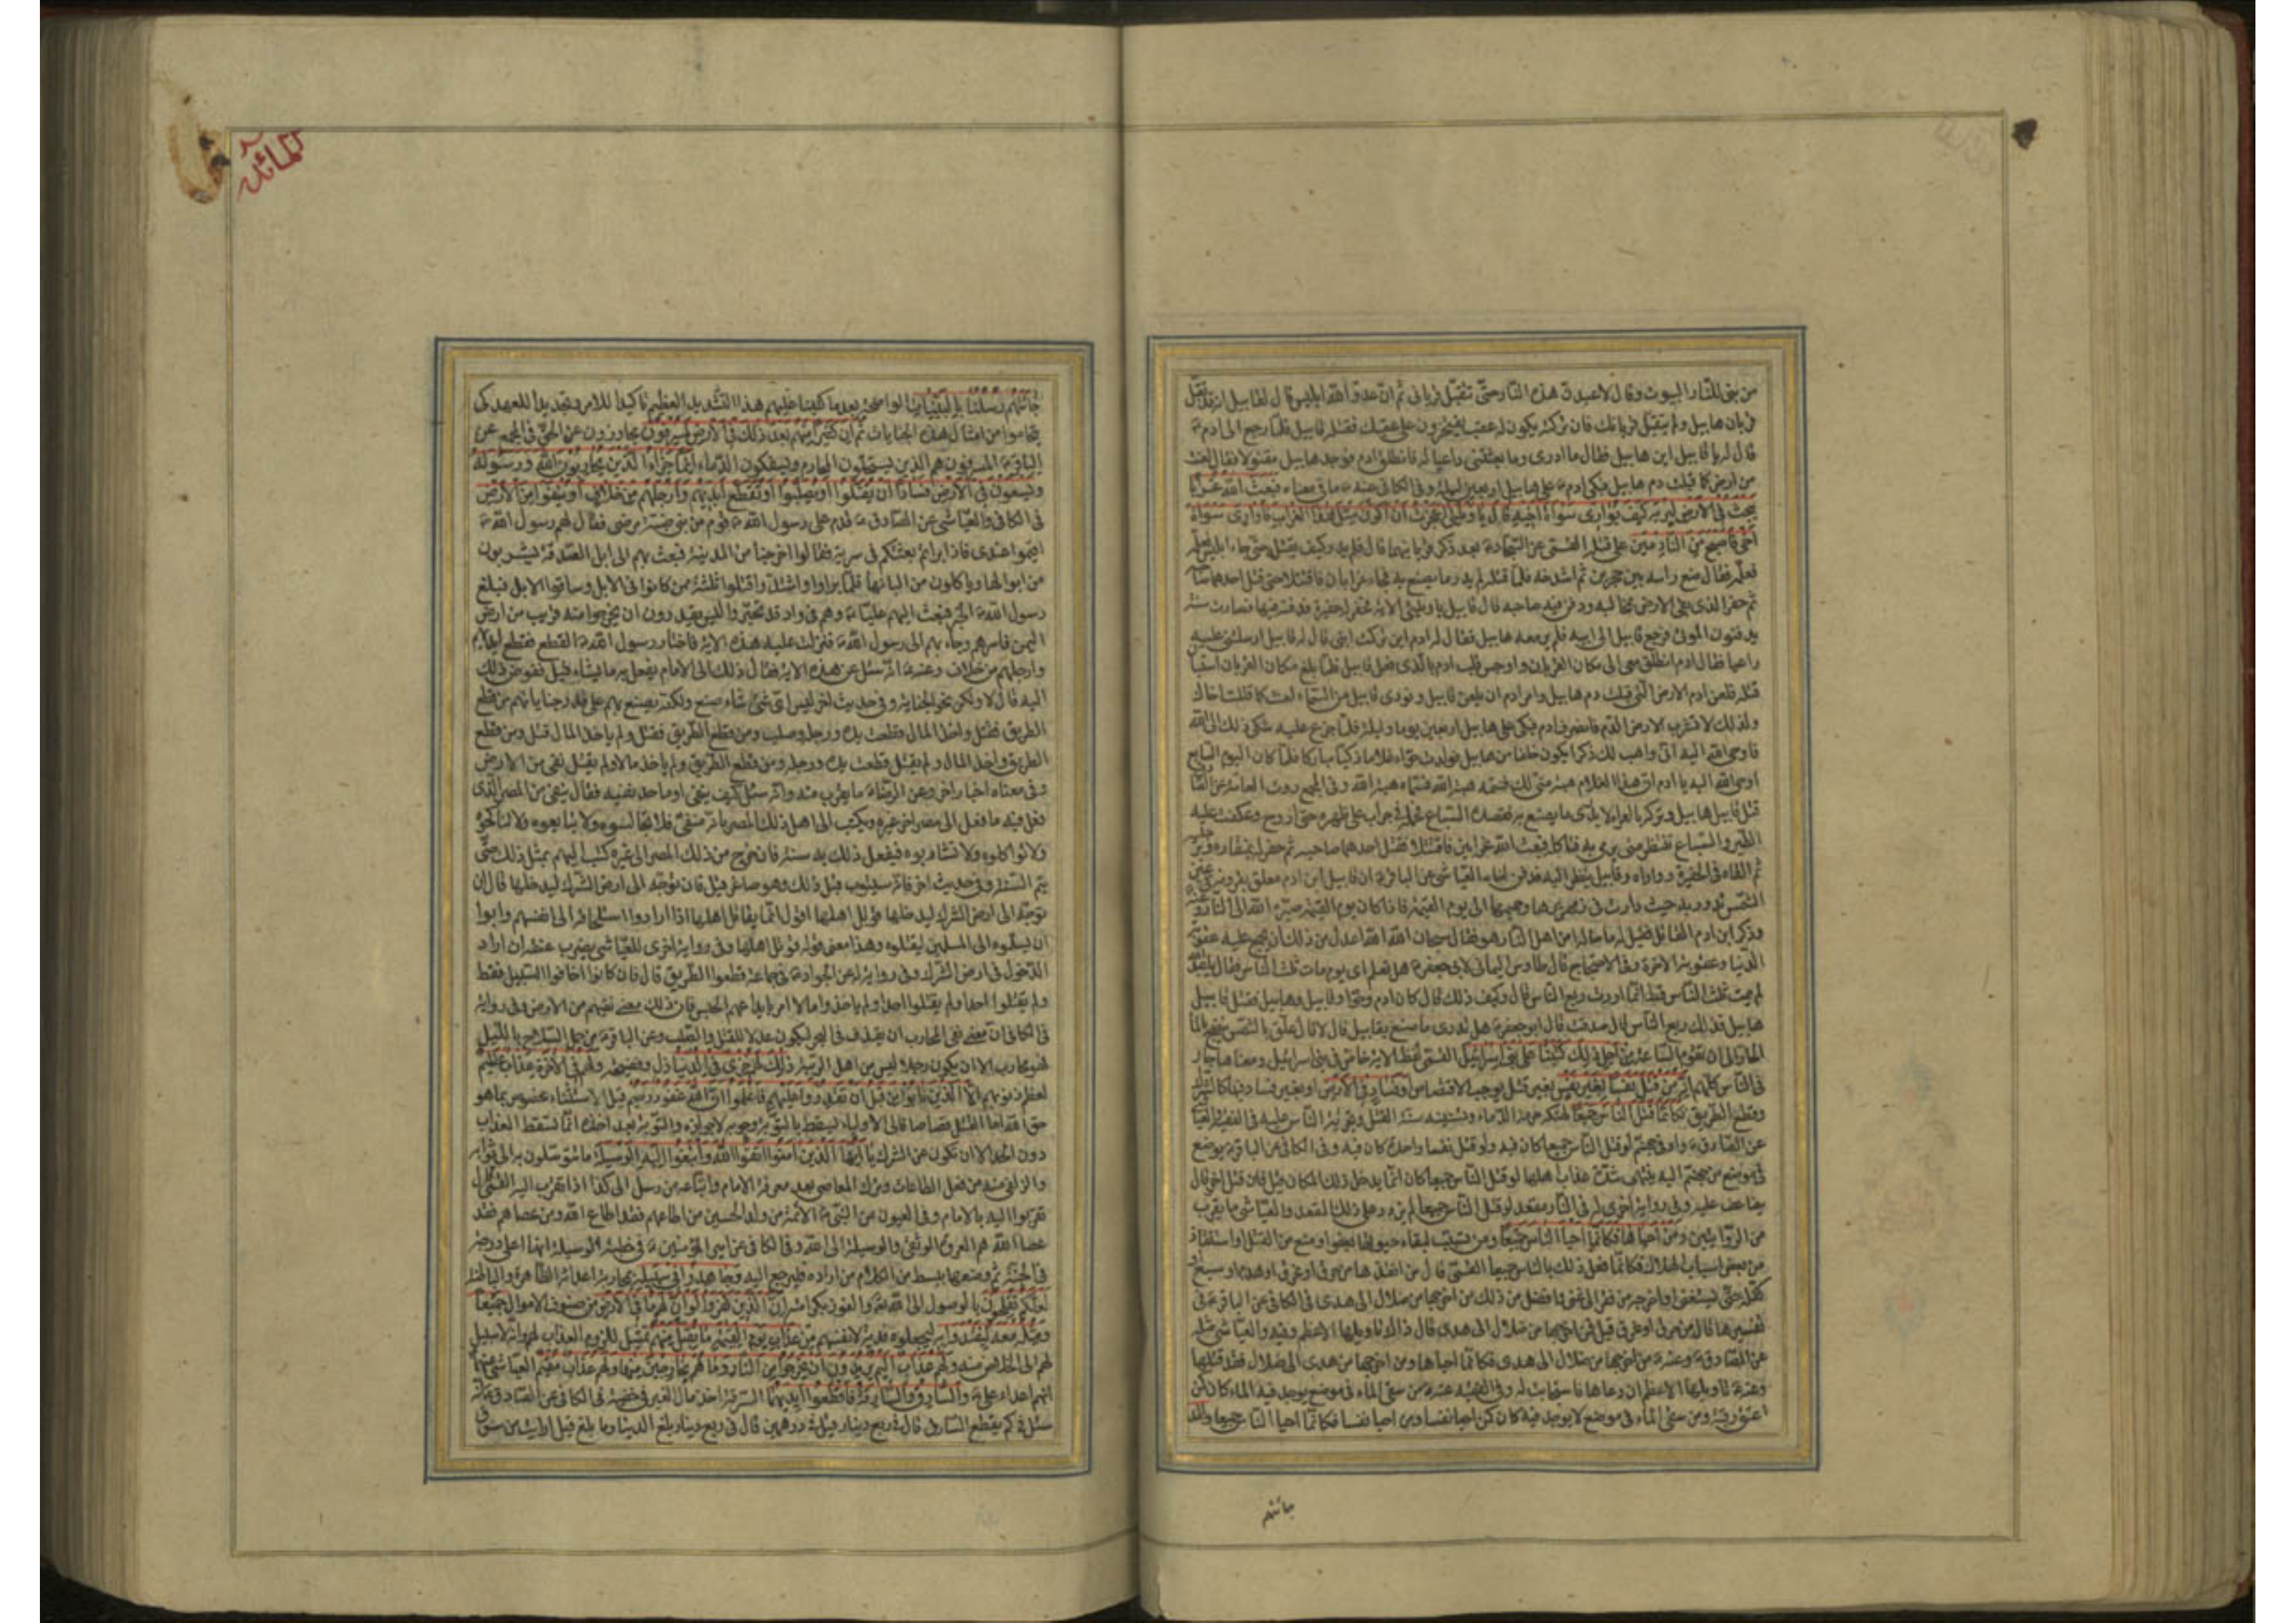 من بنى للنار البيوت وقال لاعبدنّ هذه النار حتّى تقبل قرباني ثم ان عدو الله ابليس قال لقابيل انه قد تقبل
قربان هابيل ولم يتقبل قربانك فان تركته يكون له عقب يفتخرون على عقبك فقتله قابيل فلمّا رجع الى ادم ع
قال له يا قابيل اين هابيل فقال ما ادرى وما بعثتنى راعيا له فانطلق ادم فوجد هابيل مقتولا فقال لعنت
من ارض كما قبلت دم هابيل فبكى ادم ع على هابيل اربعين ليلة وفى الكافى عنه ع ما فى معناه فبعث الله غرابا
يبحث فى الارض ليريه كيف يوارى سوأة اخيه قال يا ويلتى اعجزت ان اكون مثل هذا الغراب فاوارى سوأة
اخى فاصبح من النادمين على قتله القمّى عن السجاد ع بعد ذكر قربانهما قال فلم يدر كيف يقتله حتى جاء ابليس
فعلّمه فقال ضع راسه بين حجرين ثم اشدخه فلمّا قتله لم يدر ما يصنع به فجاء غرابان فاقتتلا حتى قتل احدهما صاحبه
ثم حفر الذى بقى الارض بمخالبه ودفن فيه صاحبه قال قابيل يا ويلتى الاية فحفر له حفيرة فدفنه فيها فصارت سنة
يدفنون الموتى فرجع قابيل الى ابيه فلم ير معه هابيل فقال له ادم اين تركت ابنى قال له قابيل ارسلتنى عليه
راعيا فقال ادم انطلق معى الى مكان القربان واوجس قلب ادم بالذى فعل قابيل فلمّا بلغ مكان القربان استبان
قتله فلعن ادم الارض التى قبلت دم هابيل وامر ادم ان يلعن قابيل ونودى قابيل من السماء لعنت كما قتلت اخاك
ولذلك لا تشرب الارض الدم فانصرف ادم فبكى على هابيل اربعين يوما وليلة فلمّا جزع عليه شكى ذلك الى الله
فاوحى الله اليه انّى واهب لك ذكرا يكون خلفا من هابيل فولدت حوّاء غلاما زكيّا مباركا فلمّا كان اليوم السابع
اوحى الله اليه يا ادم ان هذا الغلام هبة منّى لك فسمّه هبة الله فسمّاه هبة الله وفى المجمع روت العامة عن الصا
قتل قابيل هابيل وتركه بالعراء لا يدرى ما يصنع به فقصده السباع فحمله فى جراب على ظهره حتى اروح وعكفت عليه
الطير والسباع تنتظر متى يرمى به فتاكله فبعث الله غرابين فاقتتلا فقتل احدهما صاحبه ثم حفر له بمنقاره وبرجليه
ثم القاه فى الحفيرة وواراه وقابيل ينظر اليه فدفن اخاه العياشى عن الباقر ع ان قابيل ابن ادم معلق بقرونه فى عين
الشمس تدور به حيث دارت فى زمهريرها وحميمها الى يوم القيمة فاذا كان يوم القيمة صيره الله الى النار و
وذكر ابن ادم القاتل فقيل له ما حاله امن اهل النار هو فقال سبحان الله الله اعدل من ذلك ان يجمع عليه عقوبة
الدنيا وعقوبة الاخرة وفى الاحتجاج قال طاوس اليمانى لابى جعفر ع هل تعلم اى يوم مات ثلث الناس فقال يا عبد الله
لم يمت ثلث الناس قط انما اردت ربع الناس قال وكيف ذلك قال كان ادم وحوا وقابيل وهابيل فقتل قابيل
هابيل فذلك ربع الناس قال صدقت قال ابو جعفر ع هل تدرى ما صنع بقابيل قال لا قال علق بالشمس ينضح بالماء
الحار الى ان تقوم الساعة من اجل ذلك كتبنا على بنى اسرائيل القمّى لفظ الاية خاص فى بنى اسرائيل ومعناها جار
فى الناس كلهم انه من قتل نفسا بغير نفس بغير قتل يوجب الاقتصاص او فساد فى الارض او بغير فساد فيها كالشرك
وقطع الطريق فكانما قتل الناس جميعا لهتكه حرمة الدماء وتسنينه سنة القتل وتجرئة الناس عليه فى الفقيه والعيا
عن الصادق ع واد فى جهنم لو قتل الناس جميعا كان فيه ولو قتل نفسا واحدة كان فيه وفى الكافى عن الباقر ع يوضع
فى موضع من جهنم اليه ينتهى شدة عذاب اهلها لو قتل الناس جميعا كان انما يدخل ذلك المكان قيل فان قتل اخر قال
يضاعف عليه وفى رواية اخرى له فى النار مقعد لو قتل الناس جميعا لم يزد على ذلك المقعد والعياشى ما يقرب
من الروايتين ومن احياها فكانما احيا الناس جميعا ومن تسبب لبقاء حيوتها بعفو او منع من القتل او استنقاذ
من بعض اسباب الهلاك فكانما فعل ذلك بالناس جميعا القمّى قال من انقذها من حرق او غرق او هدم او سبع
كلّه حتى يستغنى او اخرجه من فقر الى غنى وافضل من ذلك من اخرجها من ضلال الى هدى فى الكافى عن الباقر ع فى
تفسيرها قال من حرق او غرق قيل فمن اخرجها من ضلال الى هدى قال ذاك تاويلها الاعظم وفيه والعياشى مثله
عن الصادق ع وعنه ع من اخرجها من ضلال الى هدى فكانما احياها ومن اخرجها من هدى الى ضلال فقد قتلها
وعنه ع تاويلها الاعظم ان دعاها فاستجابت له وفى الفقيه عنه ع من سقى الماء فى موضع يوجد فيه الماء كان كمن
اعتق رقبة ومن سقى الماء فى موضع لا يوجد فيه كان كمن احيا نفسا ومن احيا نفسا فكانما احيا الناس جميعا ولقد
جائتهم
المائدة
جائتهم رسلنا بالبينات بالواضحة بعد ما كتبنا عليهم هذا التشديد العظيم تاكيدا للامر وتجديدا للعهد كى
يتحاموا من امثال هذه الجنايات ثم ان كثيرا منهم بعد ذلك فى الارض لمسرفون مجاوزون عن الحق فى المجمع عن
الباقر ع المسرفون هم الذين يستحلون المحارم ويسفكون الدماء انما جزاء الذين يحاربون الله ورسوله
ويسعون فى الارض فسادا ان يقتلوا او يصلبوا او تقطع ايديهم وارجلهم من خلاف او ينفوا من الارض
فى الكافى والعياشى عن الصادق ع قدم على رسول الله ص قوم من بنى ضبة مرضى فقال لهم رسول الله ص
اقيموا عندى فاذا برأتم بعثتكم فى سرية فقالوا اخرجنا من المدينة فبعث بهم الى ابل الصدقة يشربون
من ابوالها وياكلون من البانها فلمّا برأوا واشتدّوا قتلوا ثلثة ممن كانوا فى الابل وساقوا الابل فبلغ
رسول الله ص الخبر فبعث اليهم عليّا ع وهم فى واد قد تحيّروا ليس يقدرون ان يخرجوا منه قريب من ارض
اليمن فاسرهم وجاء بهم الى رسول الله ص فنزلت عليه هذه الاية فاختار رسول الله ص القطع فقطع ايديهم
وارجلهم من خلاف وعنه ع انه سئل عن هذه الاية فقال ذلك الى الامام يفعل به ما يشاء قيل فمفوض ذلك
اليه قال لا ولكن نحو الجناية وفى حديث اخر ليس اى شىء شاء صنع ولكنه يصنع بهم على قدر جناياتهم من قطع
الطريق فقتل واخذ المال قطعت يده ورجله وصلب ومن قطع الطريق فقتل ولم ياخذ المال قتل ومن قطع
الطريق واخذ المال ولم يقتل قطعت يده ورجله ومن قطع الطريق ولم ياخذ مالا ولم يقتل نفى من الارض
وفى معناه اخبار اخر وعن الرضا ع ما يقرب منه وانه سئل كيف ينفى وما حد نفيه فقال ينفى من المصر الذى
فعل فيه ما فعل الى مصر اخر غيره ويكتب الى اهل ذلك المصر بانه منفىّ فلا تجالسوه ولا تبايعوه ولا تناكحوه
ولا تواكلوه ولا تشاربوه فيفعل ذلك به سنة فان خرج من ذلك المصر الى غيره كتب اليهم بمثل ذلك حتّى
يتم السنة وفى حديث اخر فانه سيتوب قبل ذلك وهو صاغر قيل فان توجّه الى ارض الشرك ليدخلها قال ان
توجّه الى ارض الشرك ليدخلها قوتل اهلها اقول انما يقاتل اهلها اذا ارادوا استلحاقه الى انفسهم وابوا
ان يسلّموه الى المسلمين ليقتلوه وهذا معنى قوله قوتل اهلها وفى رواية اخرى للعياشى يضرب عنقه ان اراد
الدخول فى ارض الشرك وفى رواية له عن الجواد ع فى جماعة قطعوا الطريق قال فان كانوا اخافوا السبيل فقط
ولم يقتلوا احدا ولم ياخذوا مالا امر بايداعهم الحبس فان ذلك معنى نفيهم من الارض وفى رواية
فى الكافى ان معنى نفى المحارب ان يقذف فى البحر ليكون عدلا للقتل والصلب وعن الباقر ع من حمل السلاح بالليل
فهو محارب الا ان يكون رجلا ليس من اهل الريبة ذلك لهم خزى فى الدنيا ذل وفضيحة ولهم فى الاخرة عذاب عظيم
لعظم ذنوبهم الا الذين تابوا من قبل ان تقدروا عليهم فاعلموا ان الله غفور رحيم قيل الاستثناء مخصوص بما هو
حق الله اما القتل قصاصا فالى الاولياء يسقط بالتوبة وجوبه لا جوازه والتوبة بعد اخذه انما تسقط العذاب
دون الحد الا ان تكون عن الشرك يا ايها الذين امنوا اتقوا الله وابتغوا اليه الوسيلة ما تتوسلون به الى ثوابه
والزلفى منه من فعل الطاعات وترك المعاصى بعد معرفة الامام واتباعه من وسل الى كذا اذا تقرب اليه القمّى قال
تقربوا اليه بالامام وفى العيون عن النبى ص الائمة من ولد الحسين من اطاعهم فقد اطاع الله ومن عصاهم فقد
عصا الله هم العروة الوثقى والوسيلة الى الله وفى الكافى عن امير المؤمنين ع فى خطبة الوسيلة انها اعلى درجة
فى الجنة ثم وصفها ببسط من الكلام من اراده فليرجع اليه وجاهدوا فى سبيله بمحاربة اعدائه الظاهرة والباطنة
لعلكم تفلحون بالوصول الى الله ع والفوز بكرامته ان الذين كفروا لو ان لهم ما فى الارض من صنوف الاموال جميعا
ومثله معه ليفتدوا به ليجعلوه فدية لانفسهم من عذاب يوم القيمة ما تقبل منهم تمثيل للزوم العذاب لهم وانه لا سبيل
لهم الى الخلاص منه ولهم عذاب اليم يريدون ان يخرجوا من النار وما هم بخارجين منها ولهم عذاب مقيم العياشى عنهما ع
انهم اعداء على ع والسارق والسارقة فاقطعوا ايديهما السرقة اخذ مال الغير فى خفية فى الكافى عن الصادق ع انه
سئل فى كم يقطع السارق قال فى ربع دينار قيل فى درهمين قال فى ربع دينار بلغ الدينار ما بلغ قيل ارايت من سرق